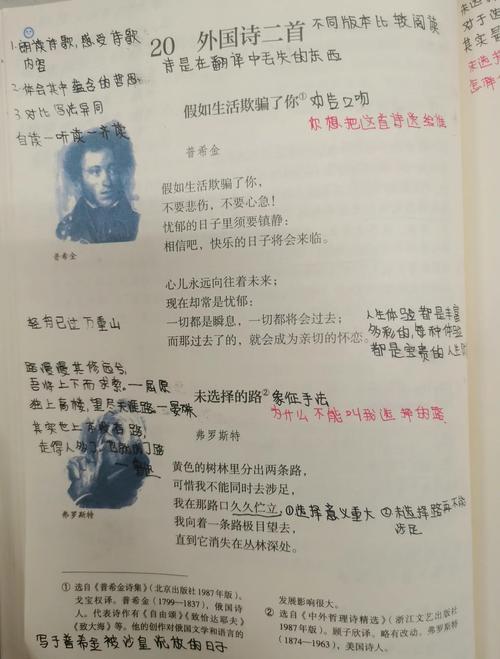 1.朗读诗歌,感受诗歌
内容
2.体会其中蕴含的哲思
3.对比 写法异同
自读—听读—齐读
20 外国诗二首
不同版本比较阅读
诗是在翻译中丢失的东西
未选
于选
其实是
未选择
怎样
假如生活欺骗了你①
劝告口吻
你想把这首诗送给谁
普希金
假如生活欺骗了你,
不要悲伤,不要心急!
忧郁的日子里须要镇静:
相信吧,快乐的日子将会来临。
普希金
心儿永远向往着未来;
现在却常是忧郁:
一切都是瞬息,一切都将会过去;
而那过去了的,就会成为亲切的怀恋。
轻舟已过万重山
人生体验都是丰富
多彩的,每种体验
都是宝贵的人生
路漫漫其修远兮,
吾将上下而求索。—屈原
独上高楼,望尽天涯路—晏殊
其实地上本没有路
走得人多了
未选择的路②
象征手法
为什么不能叫我选择的路
弗罗斯特
黄色的树林里分出两条路,
可惜我不能同时去涉足,
我在那路口久久伫立,
①选择意义重大 ②未选择路再不能
涉足
我向着一条路极目望去,
直到它消失在丛林深处。
弗罗斯特
① 选自《普希金诗集》(北京出版社1987年版)。
戈宝权译。普希金(1799—1837),俄国诗
人。代表诗作有《自由颂》《致恰达耶夫》
《致大海》等。他的创作对俄国文学和语言的
发展影响很大。
② 选自《中外哲理诗精选》(浙江文艺出版社
1987年版)。顾子欣译。略有改动。弗罗斯特
(1874—1963),美国诗人。
写于普希金被沙皇流放的日子